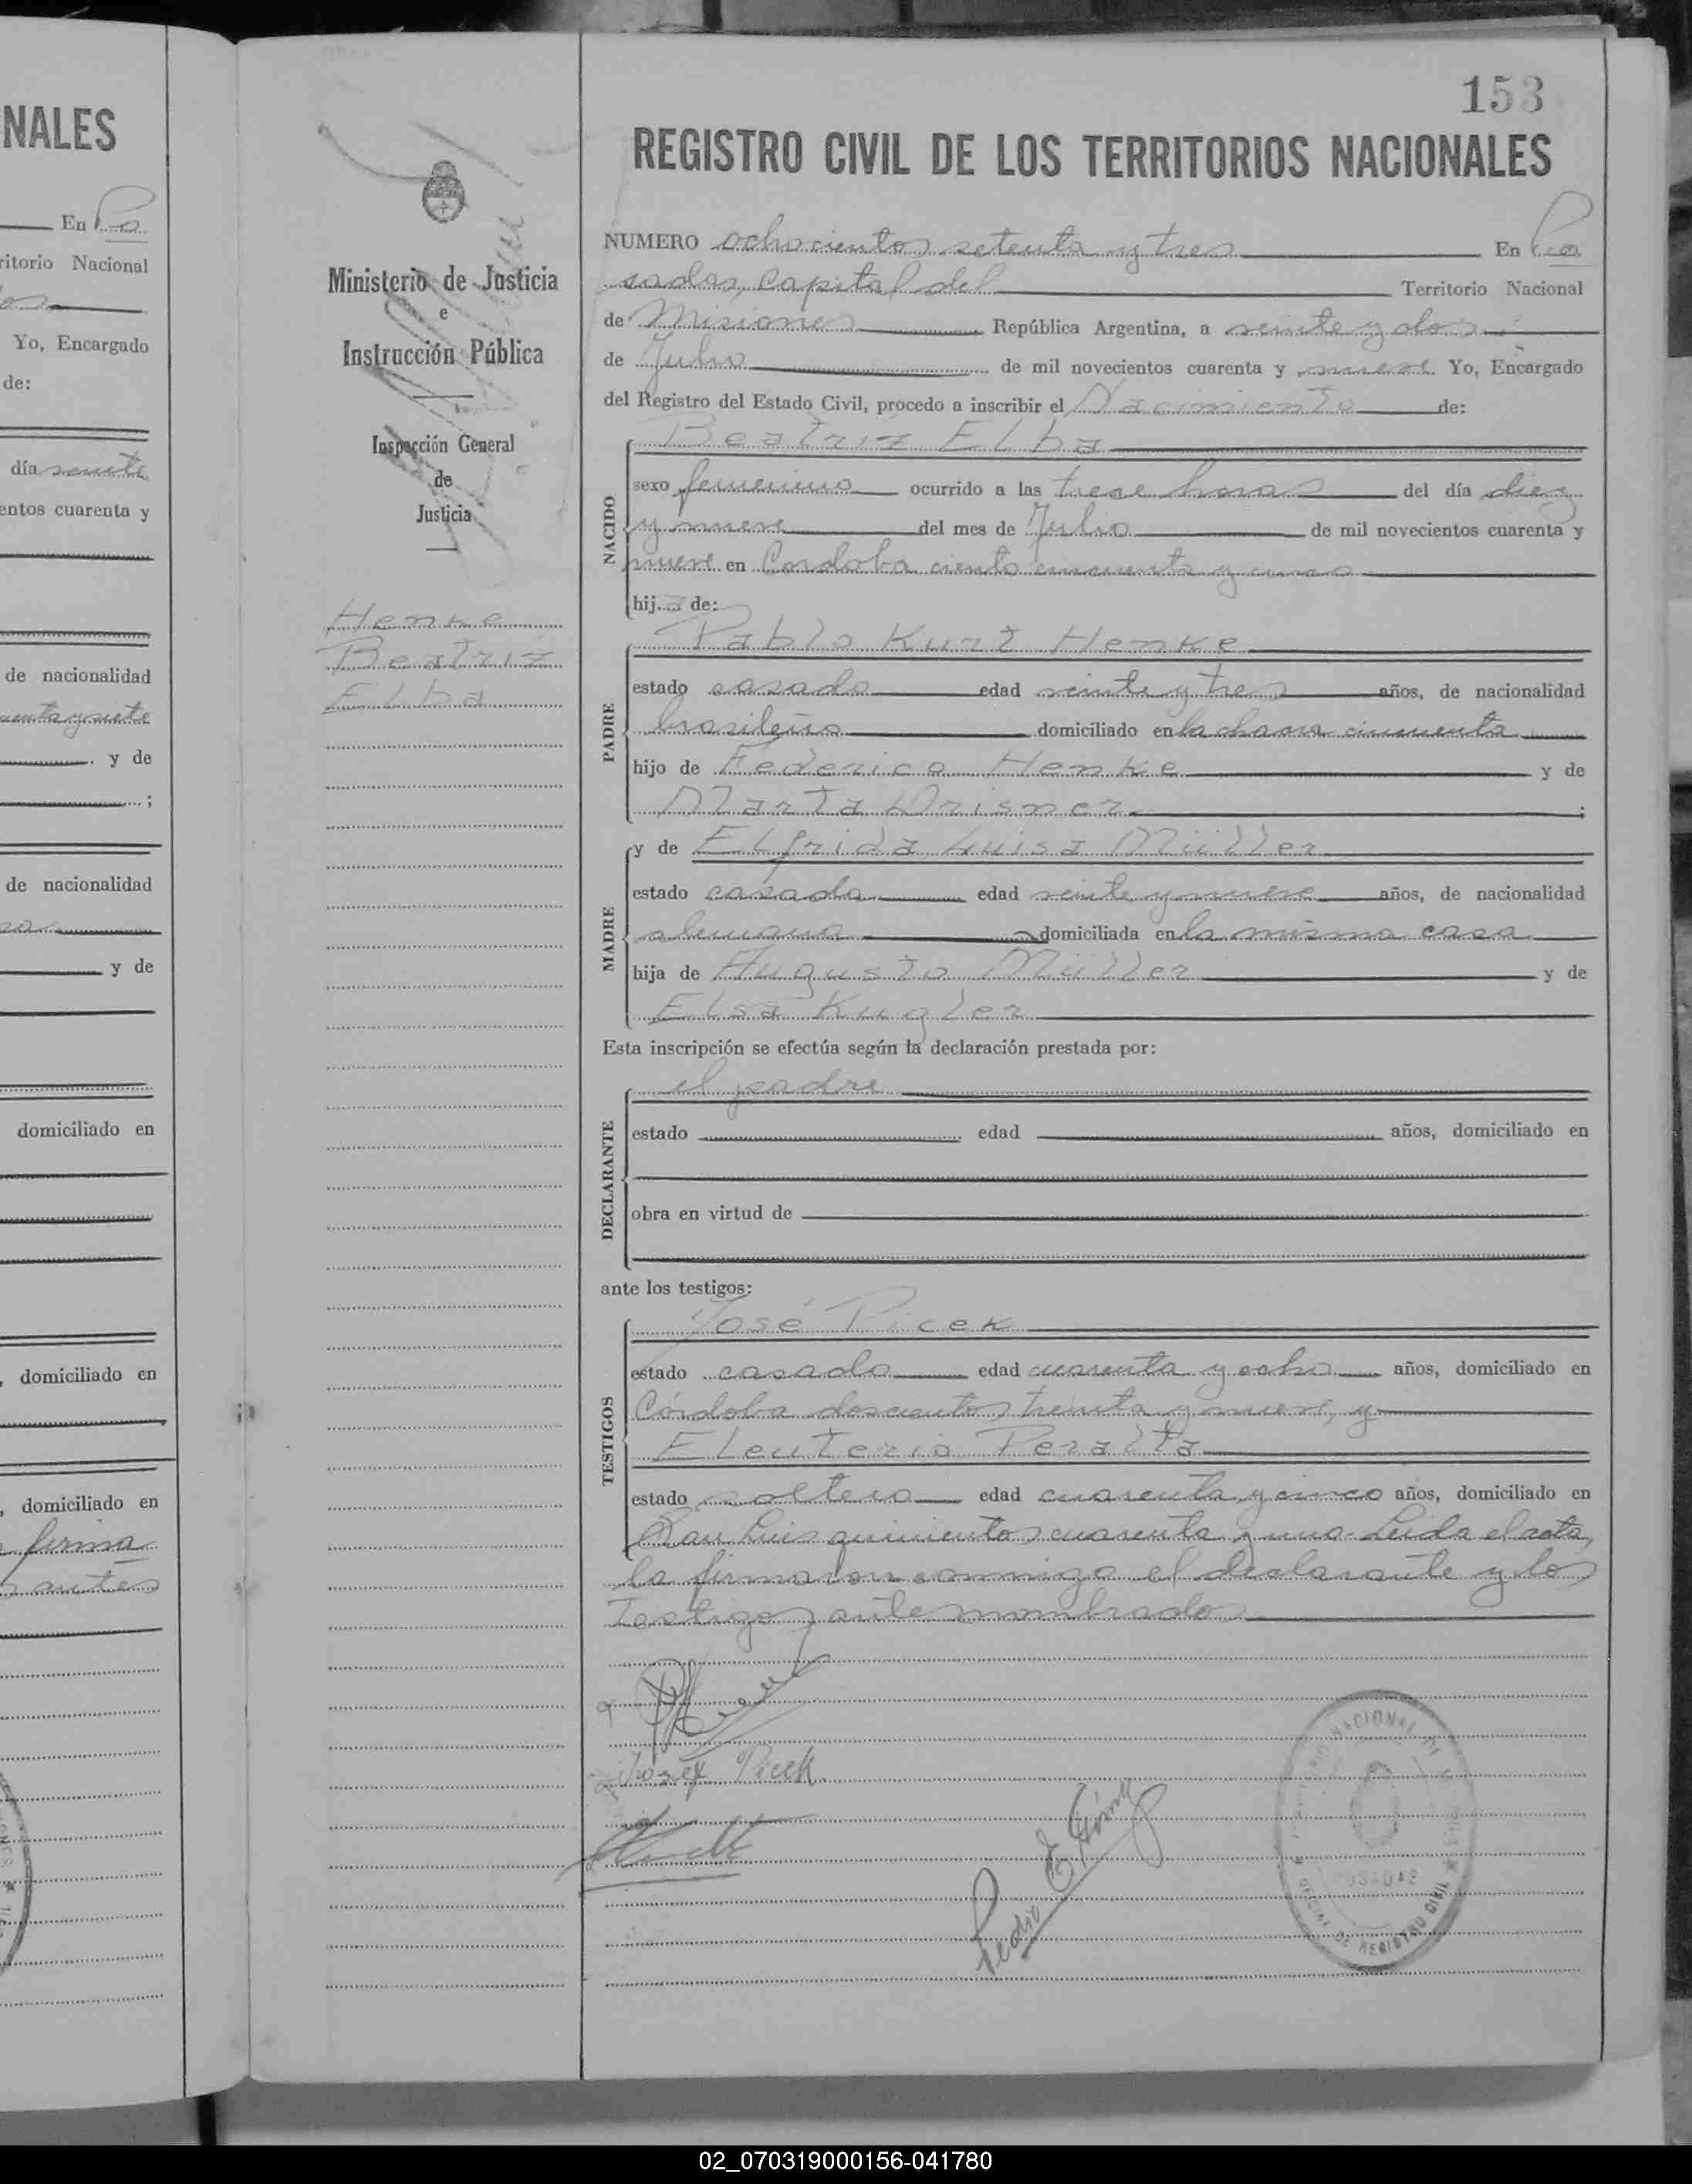 NALES
En Po
ritorio Nacional
Yo, Encargado
de:
día
entos cuarenta y
de nacionalidad
y de
;
de nacionalidad
y de
domiciliado en
, domiciliado en
, domiciliado en
firma
Ministerio de Justicia
e
Instrucción Pública
Inspección General
de
Justicia
Henke
Beatriz
Elba
153
REGISTRO CIVIL DE LOS TERRITORIOS NACIONALES
NUMERO ochocientos setenta y tres En Po
sadas, Capital del Territorio Nacional
de Misiones República Argentina, a veinte y dos
de Julio de mil novecientos cuarenta y nueve Yo, Encargado
del Registro del Estado Civil, procedo a inscribir el Nacimiento de:
NACIDO
Beatriz Elba
sexo femenino ocurrido a las trece horas del día diez
y nueve del mes de Julio de mil novecientos cuarenta y
nueve en Cordoba ciento cincuenta y cinco
hija de:
PADRE
Pablo Kurt Henke
estado casado edad veinte y tres años, de nacionalidad
brasileña domiciliado en la chacra cincuenta
hijo de Federico Henke y de
Marta Drisner ;
MADRE
y de Elfrida Luisa Müller
estado casada edad veinte y nueve años, de nacionalidad
alemana domiciliada en la misma casa
hija de Augusto Müller y de
Elsa Kugler
Esta inscripción se efectúa según la declaración prestada por:
DECLARANTE
el padre
estado edad años, domiciliado en
obra en virtud de
ante los testigos:
TESTIGOS
José Picek
estado casado edad cuarenta y ocho años, domiciliado en
Córdoba doscientos treinta y nueve, y
Eleuterio Peralta
estado soltero edad cuarenta y cinco años, domiciliado en
San Luis quinientos cuarenta y uno. Leida el acta,
la firmaron conmigo el declarante y los
Testigos ante nombrados
Picek
Pedro E. Gómez
NACIONAL
POSADAS
OFICIAL DE REGISTRO CIVIL
02_070319000156-041780